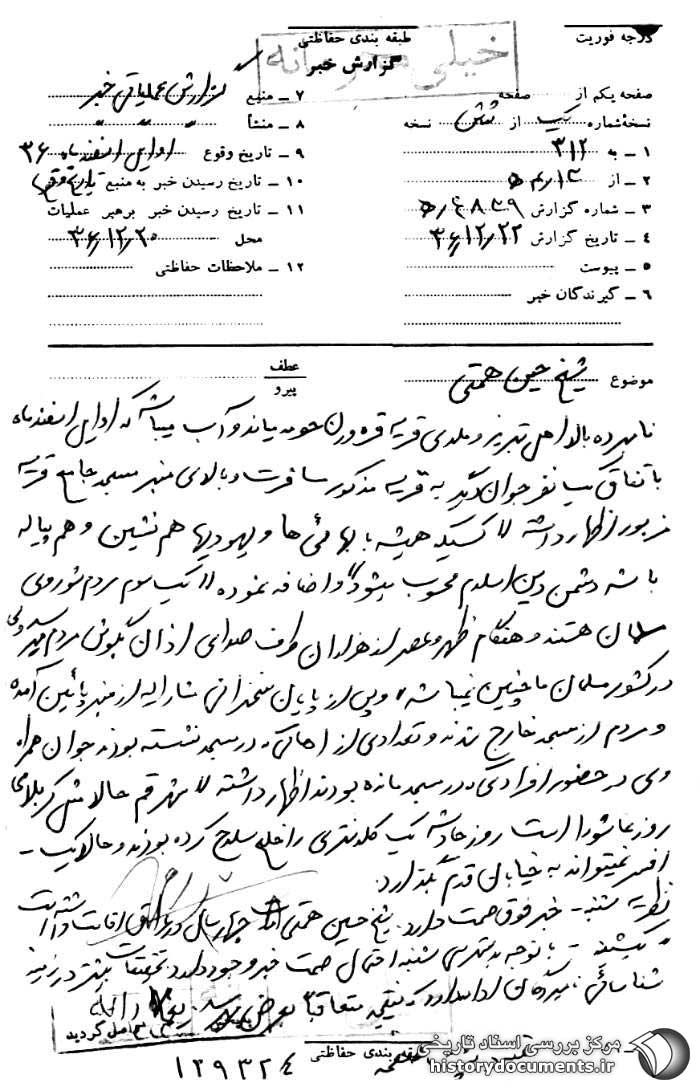 درجه فوریت
طبقه بندی حفاظتی
خیلی محرمانه
گزارش خبر
صفحه یکم از صفحه
نسخه شماره یک از شش نسخه
۱ – به ۳۱۲
۲ – از
۳ – شماره گزارش
۴ – تاریخ گزارش ۳۶٫۱۲٫۲۲
۵ – پیوست
۶ – گیرندگان خبر
۷ – منبع گزارش عملیاتی خبر
۸ – منشأ
۹ – تاریخ وقوع اوایل اسفند ماه ۳۶
۱۰ – تاریخ رسیدن خبر به منبع تاریخ وقوع
۱۱ – تاریخ رسیدن خبر برهبر عملیات
محل ۳۶٫۱۲٫۲۰
۱۲ – ملاحظات حفاظتی
موضوع شیخ حسین همتی
عطف
پیرو
نامبرده بالا اهل تبریز و ملای قریه قره ورن حومه میاندوآب میباشد که اوایل اسفند ماه
باتفاق یک نفر جوان دیگر به قریه مذکور مسافرت و بالای منبر مسجد جامع قریه
مزبور اظهار داشته « کسیکه همیشه با بهائی ها و یهودیها هم نشین و هم پیاله
باشد دشمن دین اسلام محسوب میشود » و اضافه نموده « یک سوم مردم شوروی
مسلمان هستند و هنگام ظهر و عصر از هزاران طرف صدای اذان بگوش مردم میرسد ولی
در کشور مسلمان ما چنین نمیباشد » و پس از پایان سخنرانی مشارالیه از منبر پائین آمده
و مردم از مسجد خارج شدند و تعدادی از اهالی که در مسجد نشسته بودند جوان همراه
وی در حضور افرادی که در مسجد مانده بودند اظهار داشته « شهر قم حالا مثل کربلای
روز عاشورا است روز حادثه یک کلانتری را خلع سلاح کرده بودند و حالا یک –
افسر نمیتواند به خیابان قدم بگذارد.
نظریه شنبه – خبر فوق صحت دارد. شیخ حسین همتی چهار سال در اقامت داشته است
یکشنبه – با توجه به دسترسی شنبه احتمال صحت خبر وجود دارد تحقیقات بیشتر در زمینه
شناسائی نامبردگان ادامه دارد که نتیجه متعاقباً بعرض میرسد.
طبقه بندی حفاظتی
۱۲۹۳۲۴
مرکز بررسی اسناد تاریخی
historydocuments.ir